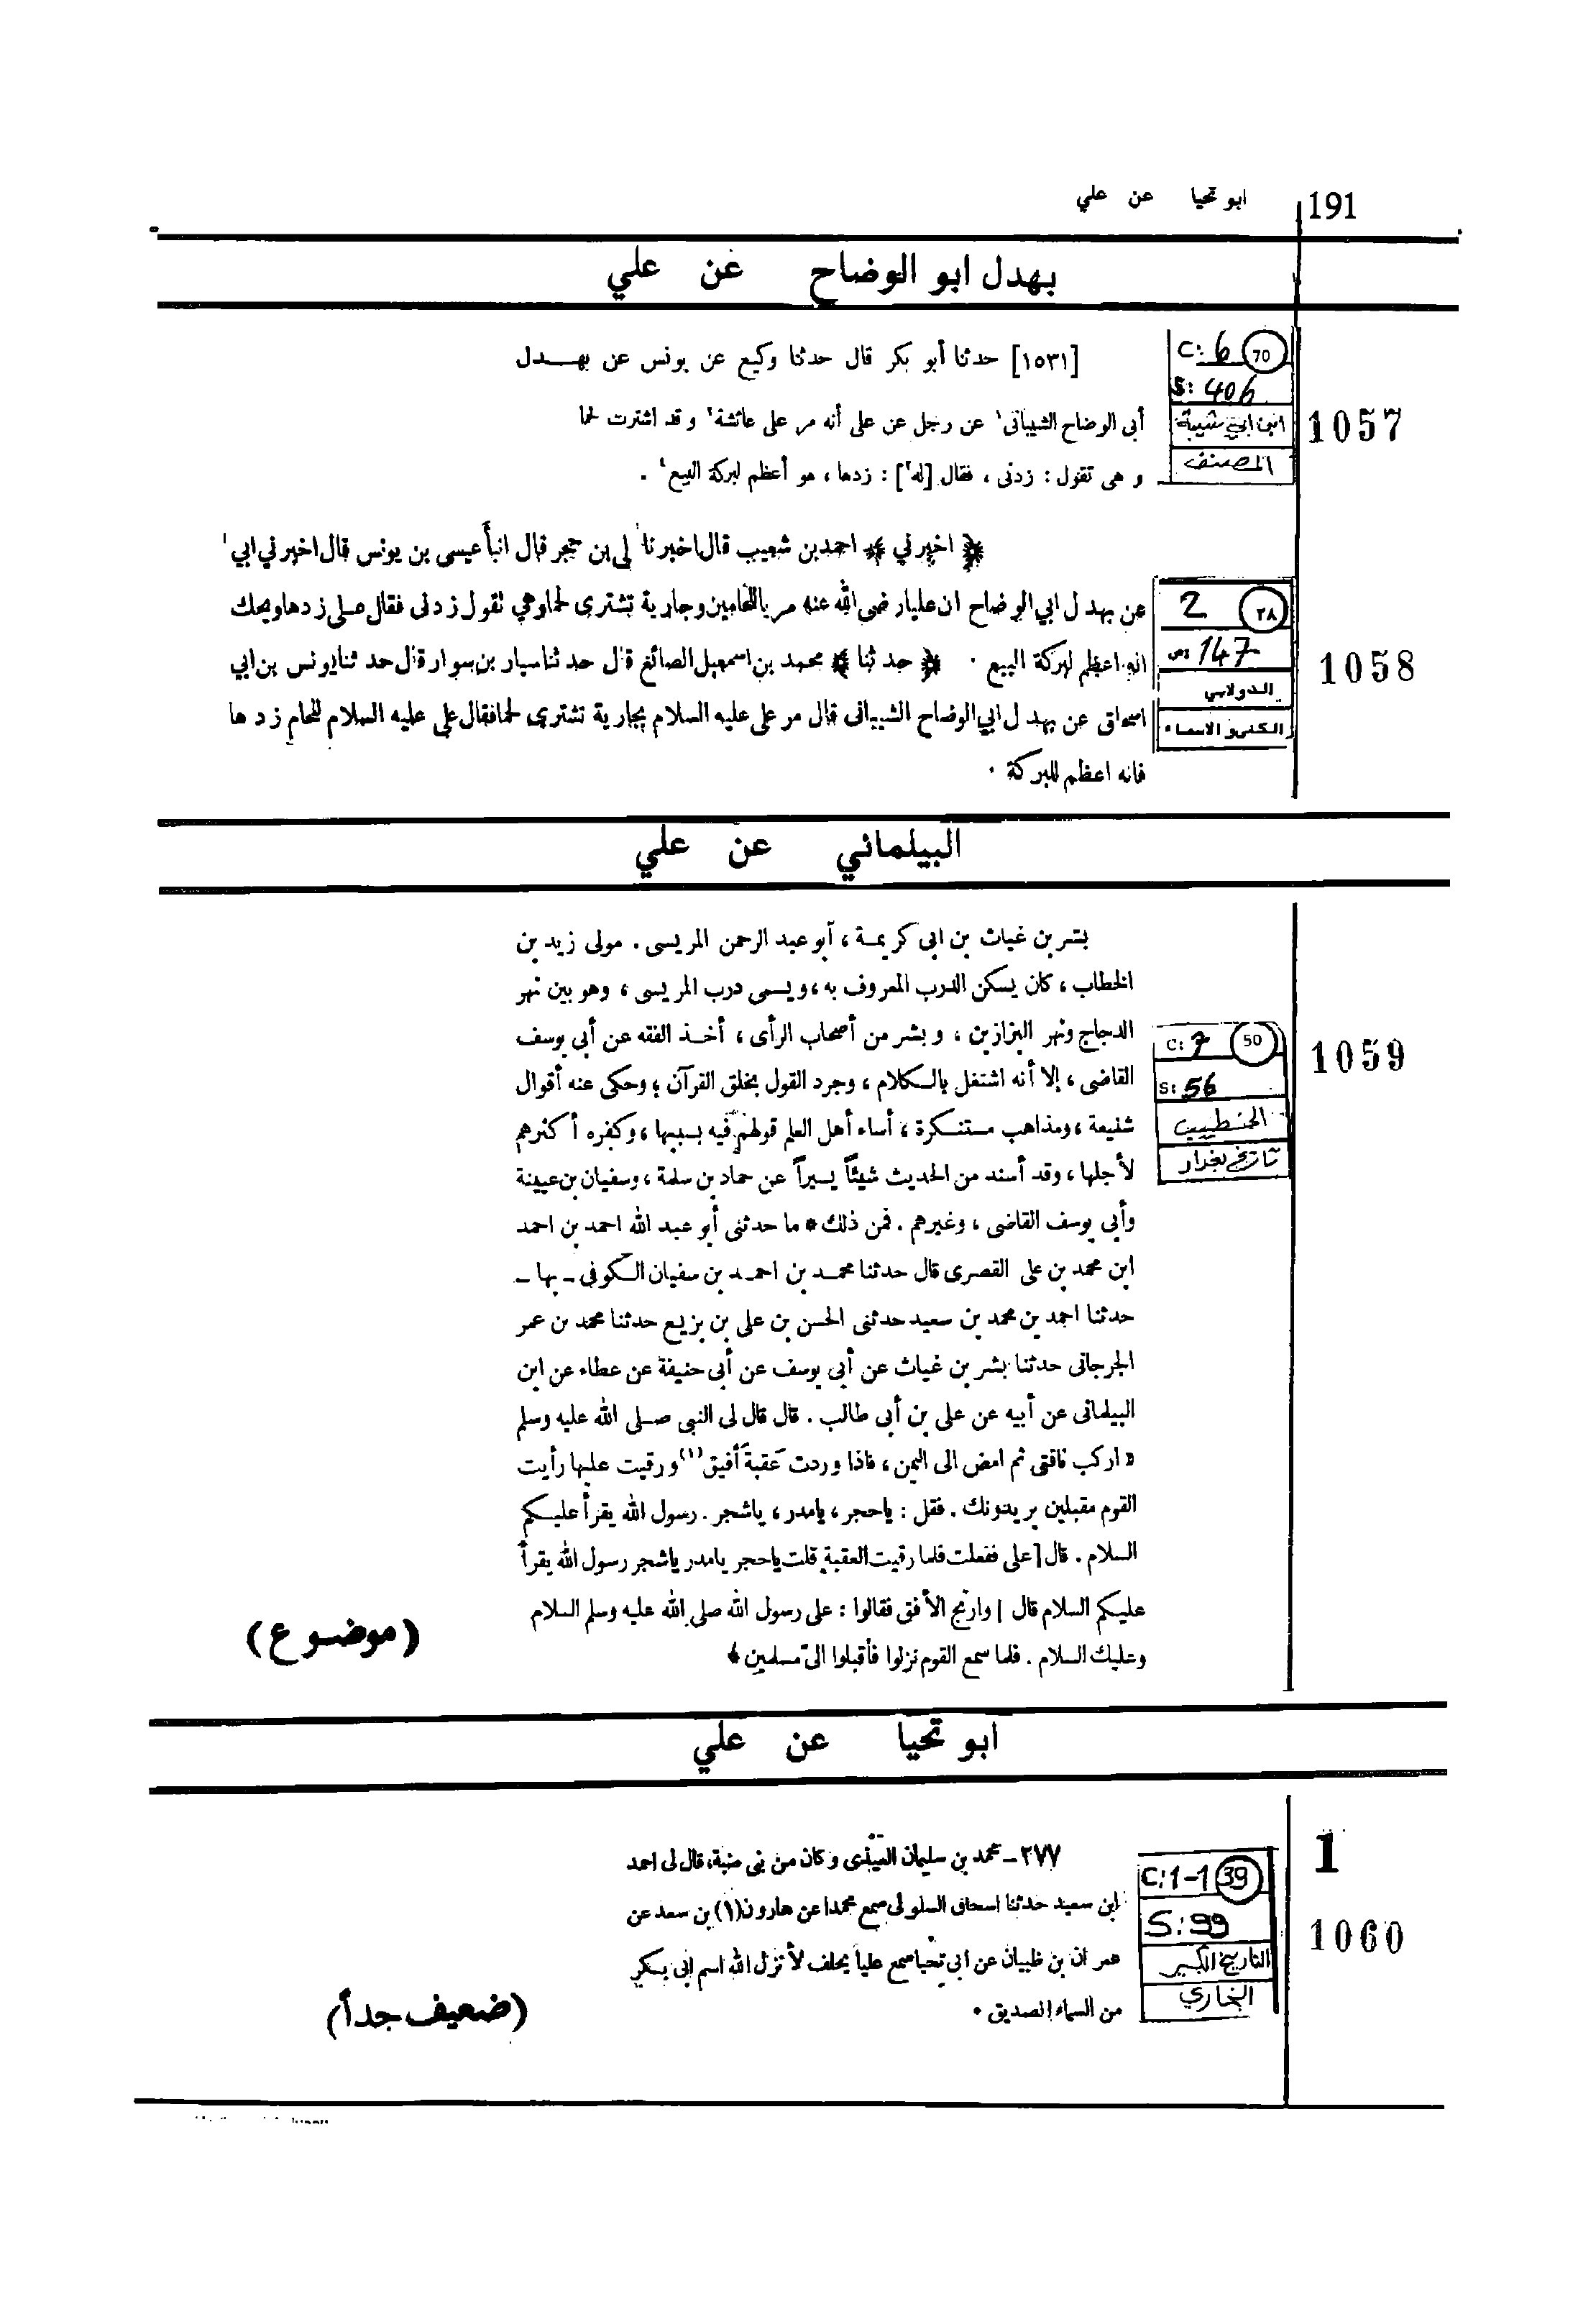 191
ابو تحيا عن علي
بهدل ابو الوضاح عن علي
C: 6 70
S: 406
ابن ابي شيبة
المصنف
1057
[١٥٣١] حدثنا أبو بكر قال حدثنا وكيع عن يونس عن بهـــدل
أبى الوضاح الشيبانى' عن رجل عن على أنه مر على عائشة' و قد اشترت لحما
و هى تقول : زدنى ، فقال [له'] : زدها ، هو أعظم لبركة البيع' .
﴿ اخبرني ﴾ احمد بن شعيب قال اخبرنا لى بن حجر قال انبأ عيسى بن يونس قال اخبرني ابي
عن بهدل ابي الوضاح ان عليا رضى الله عنه مر باللحامين وجارية تشترى لحما وهي تقول زدنى فقال على زدها ويحك
انه اعظم لبركة البيع . ﴿ حدثنا ﴾ محمد بن اسمعيل الصائغ قال حدثنا سيار بن سوار قال حدثنا يونس بن ابي
اسحاق عن بهدل ابي الوضاح الشيبانى قال مر على عليه السلام بجارية تشترى لحما فقال على عليه السلام للحام زدها
فانه اعظم للبركة .
2 ٢٨
ص: 147
الدولابي
الكنى و الاسماء
1058
البيلماني عن علي
بشر بن غياث بن ابى كريمة ، أبو عبد الرحمن المريسى . مولى زيد بن
الخطاب ، كان يسكن الدرب المعروف به ، ويسمى درب المريسى ، وهو بين نهر
الدجاج ونهر البزازين ، وبشر من أصحاب الرأى ، أخذ الفقه عن أبى يوسف
القاضى ، إلا أنه اشتغل بالكلام ، وجرد القول بخلق القرآن ، وحكى عنه أقوال
شنيعة ، ومذاهب مستنكرة ، أساء أهل العلم قولهم فيه بسببها ، وكفره أكثرهم
لأجلها ، وقد أسند من الحديث شيئاً يسيراً عن حماد بن سلمة ، وسفيان بن عيينة
وأبى يوسف القاضى ، وغيرهم . فمن ذلك * ما حدثنى أبو عبد الله احمد بن احمد
ابن محمد بن على القصرى قال حدثنا محمد بن احمد بن سفيان الكوفى - بها -
حدثنا احمد بن محمد بن سعيد حدثنى الحسن بن على بن بزيع حدثنا محمد بن عمر
الجرجانى حدثنا بشر بن غياث عن أبى يوسف عن أبى حنيفة عن عطاء عن ابن
البيلمانى عن أبيه عن على بن أبى طالب . قال قال لى النبى صلى الله عليه وسلم
« اركب ناقتى ثم امض الى اليمن ، فاذا وردت عقبة أفيق (١) ورقيت عليها رأيت
القوم مقبلين يريدونك . فقل : ياحجر ، يامدر ، ياشجر . رسول الله يقرأ عليكم
السلام . قال [ على ففعلت فلما رقيت العقبة قلت ياحجر يامدر ياشجر رسول الله يقرأ
عليكم السلام قال ] وارتج الأفق فقالوا : على رسول الله صلى الله عليه وسلم السلام
وعليك السلام . فلما سمع القوم نزلوا فأقبلوا الىّ مسلمين »
(موضوع)
C: 7 50
S: 56
الخطيب
تاريخ بغداد
1059
ابو تحيا عن علي
٢٧٧ - محمد بن سليمان العبدى وكان من بنى ضبة، قال لى احمد
ابن سعيد حدثنا اسحاق السلولى سمع محمدا عن هارون (١) بن سعد عن
عمران بن ظبيان عن أبى تحيا سمع عليا يحلف لأنزل الله اسم ابى بكر
من السماء الصديق .
(ضعيف جداً)
C: 1-1 39
S: 99
التاريخ الكبير
البخاري
1
1060